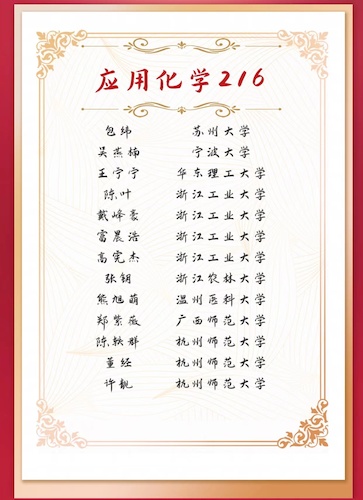 应用化学216
包纬 苏州大学
吴燕楠 宁波大学
王宁宁 华东理工大学
陈叶 浙江工业大学
戴峰豪 浙江工业大学
富晨浩 浙江工业大学
高宪杰 浙江工业大学
张钥 浙江农林大学
熊旭萌 温州医科大学
郑紫薇 广西师范大学
陈轶群 杭州师范大学
董经 杭州师范大学
许 杭州师范大学